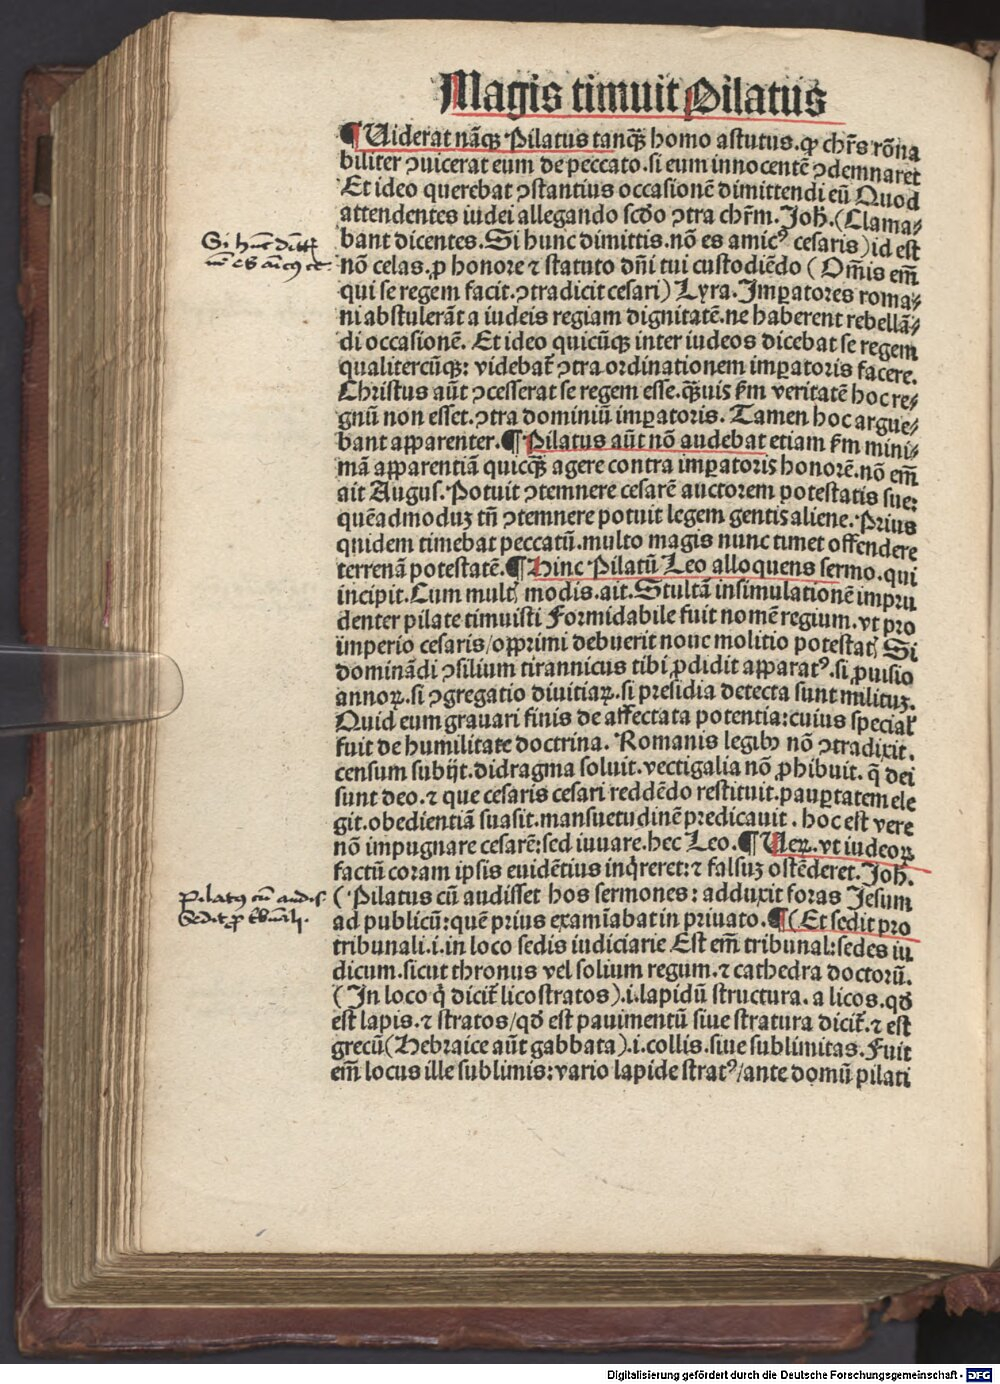 Magis timuit Pilatus
¶ Uiderat nāqꝫ Pilatus tanqꝫ̄ homo astutus. ꝙ chr̄s rōna
biliter ꝯuicerat eum de peccato. si eum innocentē ꝯdemnaret
Et ideo querebat ꝯstantius occasionē dimittendi eū Quod
attendentes iudei allegando scd̄o ꝯtra chr̄m. Joh̄. (Clama⸗
bant dicentes. Si hunc dimittis. nō es amicꝰ cesaris) id est
Si hūc dimitt
nō es amicꝰ ce.
nō celas. ꝓ honore ⁊ statuto dn̄i tui custodiēdo (Om̄is em̄
qui se regem facit. ꝯtradicit cesari) Lyra. Imꝑatores roma⸗
ni abstulerāt a iudeis regiam dignitatē. ne haberent rebellā⸗
di occasionē. Et ideo quicūqꝫ inter iudeos dicebat se regem
qualitercūqꝫ: videbat᷑ ꝯtra ordinationem imꝑatoris facere.
Christus aūt ꝯcesserat se regem esse. qꝫ̄uis ẜm veritatē hoc re⸗
gnū non esset. ꝯtra dominiū imꝑatoris. Tamen hoc argue⸗
bant apparenter. ¶ Pilatus aūt nō audebat etiam ẜm mini⸗
mā apparentiā quicqꝫ̄ agere contra imꝑatoris honorē. nō em̄
ait Augus. Potuit ꝯtemnere cesarē auctorem potestatis sue:
quēadmoduꝫ tn̄ ꝯtemnere potuit legem gentis aliene. Prius
quidem timebat peccatū. multo magis nunc timet offendere
terrenā potestatē. ¶ Hinc Pilatū Leo alloquens sermo. qui
incipit. Cum multꝭ modis. ait. Stultā insimulationē impru
denter pilate timuisti Formidabile fuit nomē regium. vt pro
imperio cesaris/opprimi debuerit noue molitio potestatꝭ Si
dominādi ꝯsilium tirannicus tibi ꝓdidit apparatꝰ. si ꝓuisio
annoꝝ. si ꝯgregatio diuitiaꝝ. si presidia detecta sunt milituꝫ.
Quid eum grauari sinis de affectata potentia: cuius special᷑
fuit de humilitate doctrina. Romanis legibꝫ nō ꝯtradixit.
censum subijt. didragma soluit. vectigalia nō ꝓhibuit. q̄ dei
sunt deo. ⁊ que cesaris cesari reddēdo restituit. pauꝑtatem ele
git. obedientiā suasit. mansuetudinē predicauit. hoc est vere
nō impugnare cesarē: sed iuuare. hec Leo. ¶ Ueꝝ. vt iudeoꝝ
factū coram ipsis euidētius inq̇reret: ⁊ falsuꝫ ostēderet. Joh̄.
(Pilatus cū audisset hos sermones: adduxit foras Jesum
Pilatꝰ cū audis.
Sedit ꝓ tribunali.
ad publicū: quē prius examiabat in priuato. ¶ (Et sedit pro
tribunali. i. in loco sedis iudiciarie Est em̄ tribunal: sedes iu
dicum. sicut thronus vel solium regum. ⁊ cathedra doctorū.
(In loco q̇ dicit᷑ licostratos). i. lapidū structura. a licos. qd̄
est lapis. ⁊ stratos/qd̄ est pauimentū siue stratura dicit᷑. ⁊ est
grecū (Hebraice aūt gabbata). i. collis. siue sublimitas. Fuit
em̄ locus ille sublimis: vario lapide stratꝰ/ante domū pilati
Digitalisierung gefördert durch die Deutsche Forschungsgemeinschaft - DFG